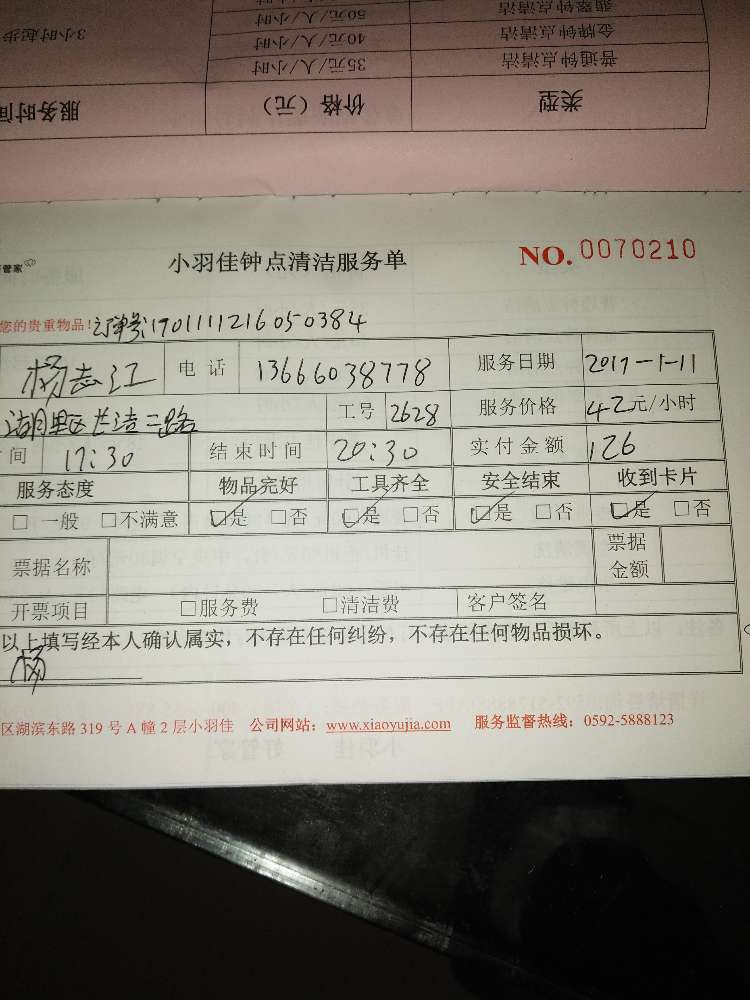 翡翠钟点清洁 50元/人/小时
金牌钟点清洁 40元/人/小时 3小时起步
普通钟点清洁 35元/人/小时
类型 价格（元） 服务时间
管家 小羽佳钟点清洁服务单 NO. 0070210
您的贵重物品！订单号:1701111216050384
杨志江 电话 13666038778 服务日期 2017-1-11
湖里区长浩二路 工号 2628 服务价格 42元/小时
间 17:30 结束时间 20:30 实付金额 126
服务态度 物品完好 工具齐全 安全结束 收到卡片
□一般 □不满意 □是 □否 □是 □否 □是 □否 □是 □否
票据名称 票据金额
开票项目 □服务费 □清洁费 客户签名
以上填写经本人确认属实，不存在任何纠纷，不存在任何物品损坏。
杨
区湖滨东路 319 号 A 幢 2 层小羽佳 公司网站：www.xiaoyujia.com 服务监督热线：0592-5888123